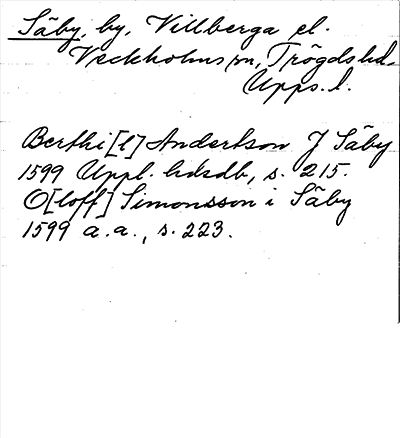 Säby, by, Villberga el.
Veckholms sn, Trögds hd.
Upps. l.
Berthi[l] Andersson J Säby
1599 Uppl. hdsdb, s. 215.
O[loff] Simonsson i Säby
1599 a.a., s. 223.